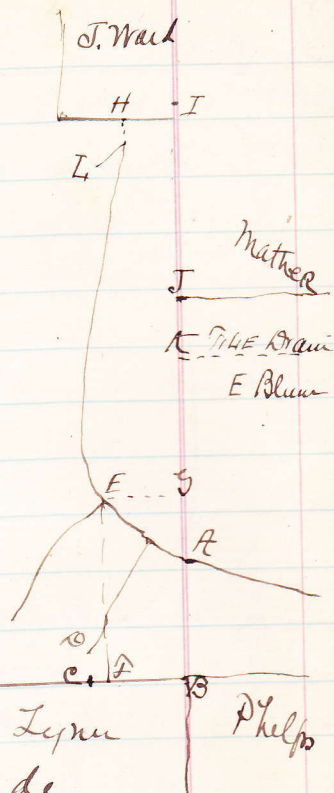 J. Ward
H I
L
Mather
J
K Tile Drain
E Blum
E G
A
D
C F B
Lynn Phelps
de